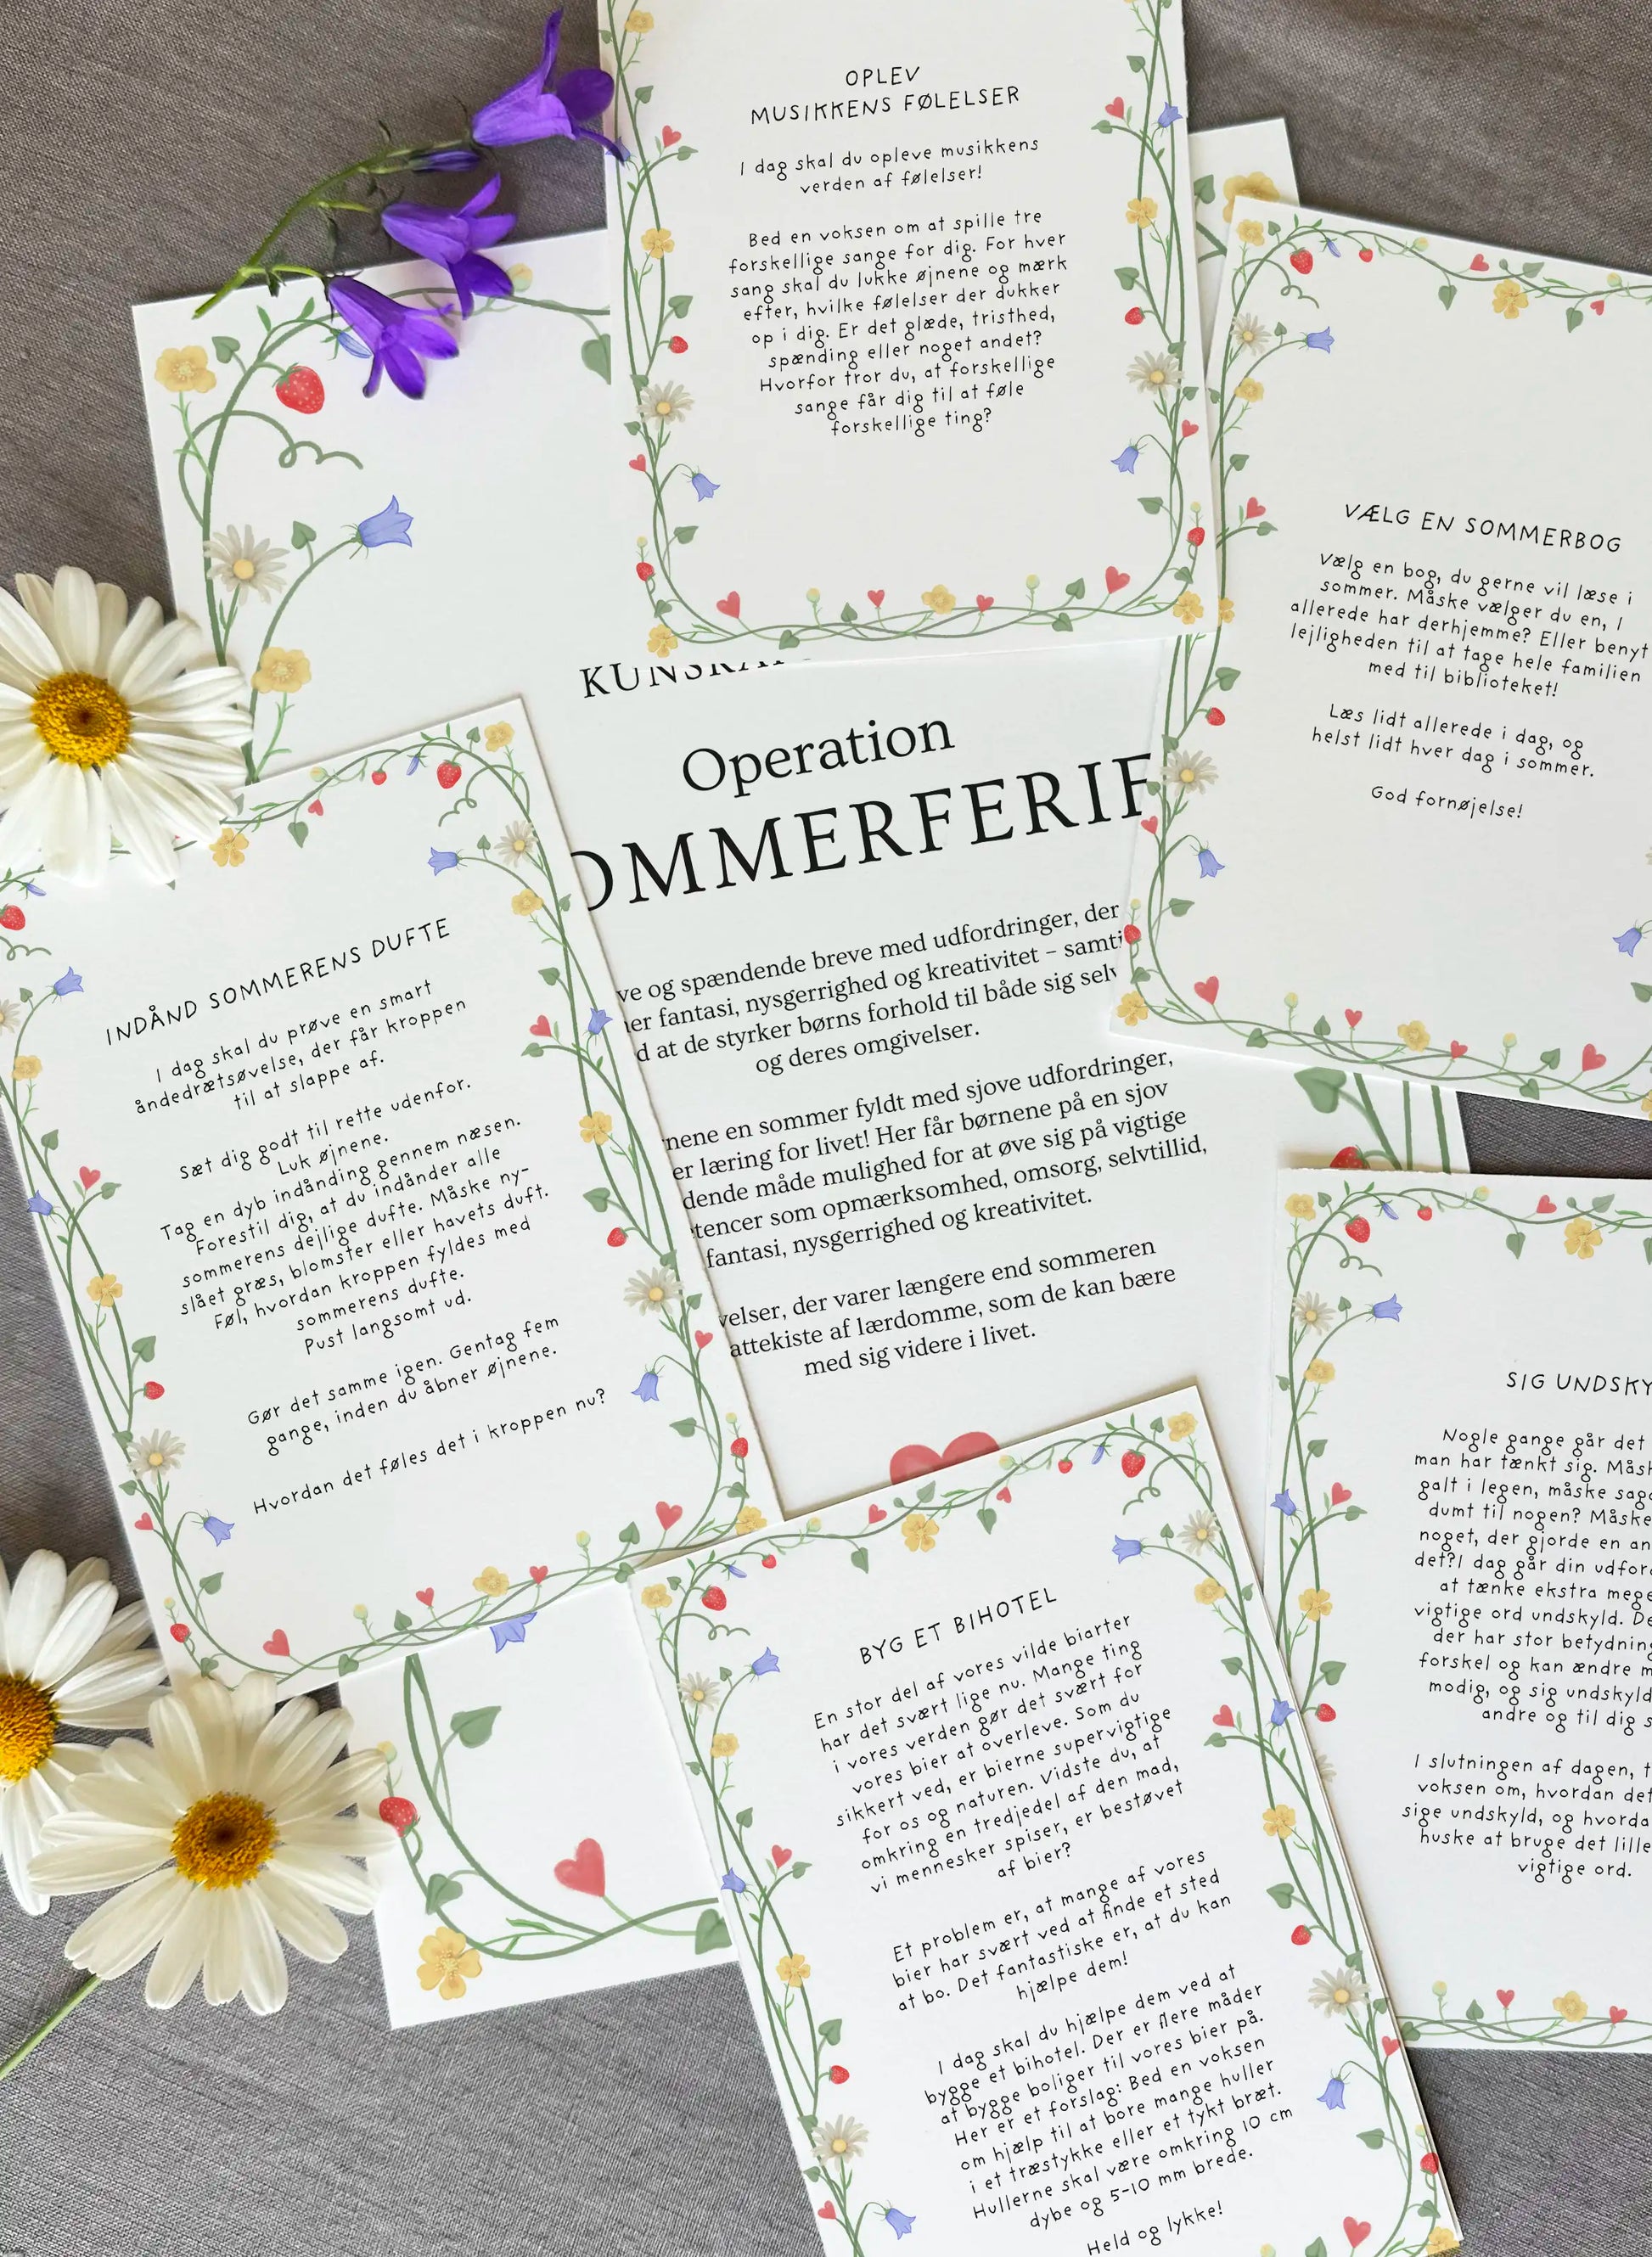 OPLEV
MUSIKKENS FØLELSER
I dag skal du opleve musikkens
verden af følelser!
Bed en voksen om at spille tre
forskellige sange for dig. For hver
sang skal du lukke øjnene og mærk
efter, hvilke følelser der dukker
op i dig. Er det glæde, tristhed,
spænding eller noget andet?
Hvorfor tror du, at forskellige
sange får dig til at føle
forskellige ting?
VÆLG EN SOMMERBOG
Vælg en bog, du gerne vil læse i
sommer. Måske vælger du en, I
allerede har derhjemme? Eller benyt
lejligheden til at tage hele familien
med til biblioteket!
Læs lidt allerede i dag, og
helst lidt hver dag i sommer.
God fornøjelse!
Operation
OMMERFERIE
ve og spændende breve med udfordringer, der
er fantasi, nysgerrighed og kreativitet – samti
d at de styrker børns forhold til både sig selv
og deres omgivelser.
nene en sommer fyldt med sjove udfordringer,
er læring for livet! Her får børnene på en sjov
dende måde mulighed for at øve sig på vigtige
tencer som opmærksomhed, omsorg, selvtillid,
fantasi, nysgerrighed og kreativitet.
velser, der varer længere end sommeren
attekiste af lærdomme, som de kan bære
med sig videre i livet.
INDÅND SOMMERENS DUFTE
I dag skal du prøve en smart
åndedrætsøvelse, der får kroppen
til at slappe af.
Sæt dig godt til rette udenfor.
Luk øjnene.
Tag en dyb indånding gennem næsen.
Forestil dig, at du indånder alle
sommerens dejlige dufte. Måske ny-
slået græs, blomster eller havets duft.
Føl, hvordan kroppen fyldes med
sommerens dufte.
Pust langsomt ud.
Gør det samme igen. Gentag fem
gange, inden du åbner øjnene.
Hvordan det føles det i kroppen nu?
BYG ET BIHOTEL
En stor del af vores vilde biarter
har det svært lige nu. Mange ting
i vores verden gør det svært for
vores bier at overleve. Som du
sikkert ved, er bierne supervigtige
for os og naturen. Vidste du, at
omkring en tredjedel af den mad,
vi mennesker spiser, er bestøvet
af bier?
Et problem er, at mange af vores
bier har svært ved at finde et sted
at bo. Det fantastiske er, at du kan
hjælpe dem!
I dag skal du hjælpe dem ved at
bygge et bihotel. Der er flere måder
at bygge boliger til vores bier på.
Her er et forslag: Bed en voksen
om hjælp til at bore mange huller
i et træstykke eller et tykt bræt.
Hullerne skal være omkring 10 cm
dybe og 5-10 mm brede.
Held og lykke!
SIG UNDSKY
Nogle gange går det
man har tænkt sig. Måsk
galt i legen, måske sag
dumt til nogen? Måske
noget, der gjorde en an
det?I dag går din udfor
at tænke ekstra mege
vigtige ord undskyld. De
der har stor betydning
forskel og kan ændre m
modig, og sig undskyld
andre og til dig s
I slutningen af dagen, t
voksen om, hvordan det
sige undskyld, og hvorda
huske at bruge det lille
vigtige ord.